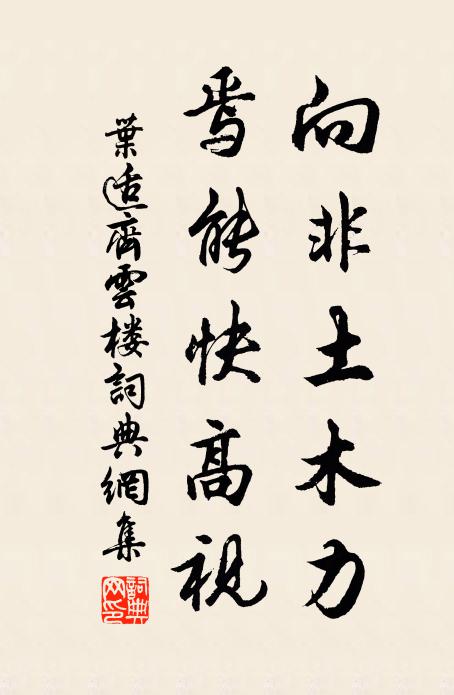 向非土木力
焉能快高視
葉适齊雲楼詞典網集
詞典网印